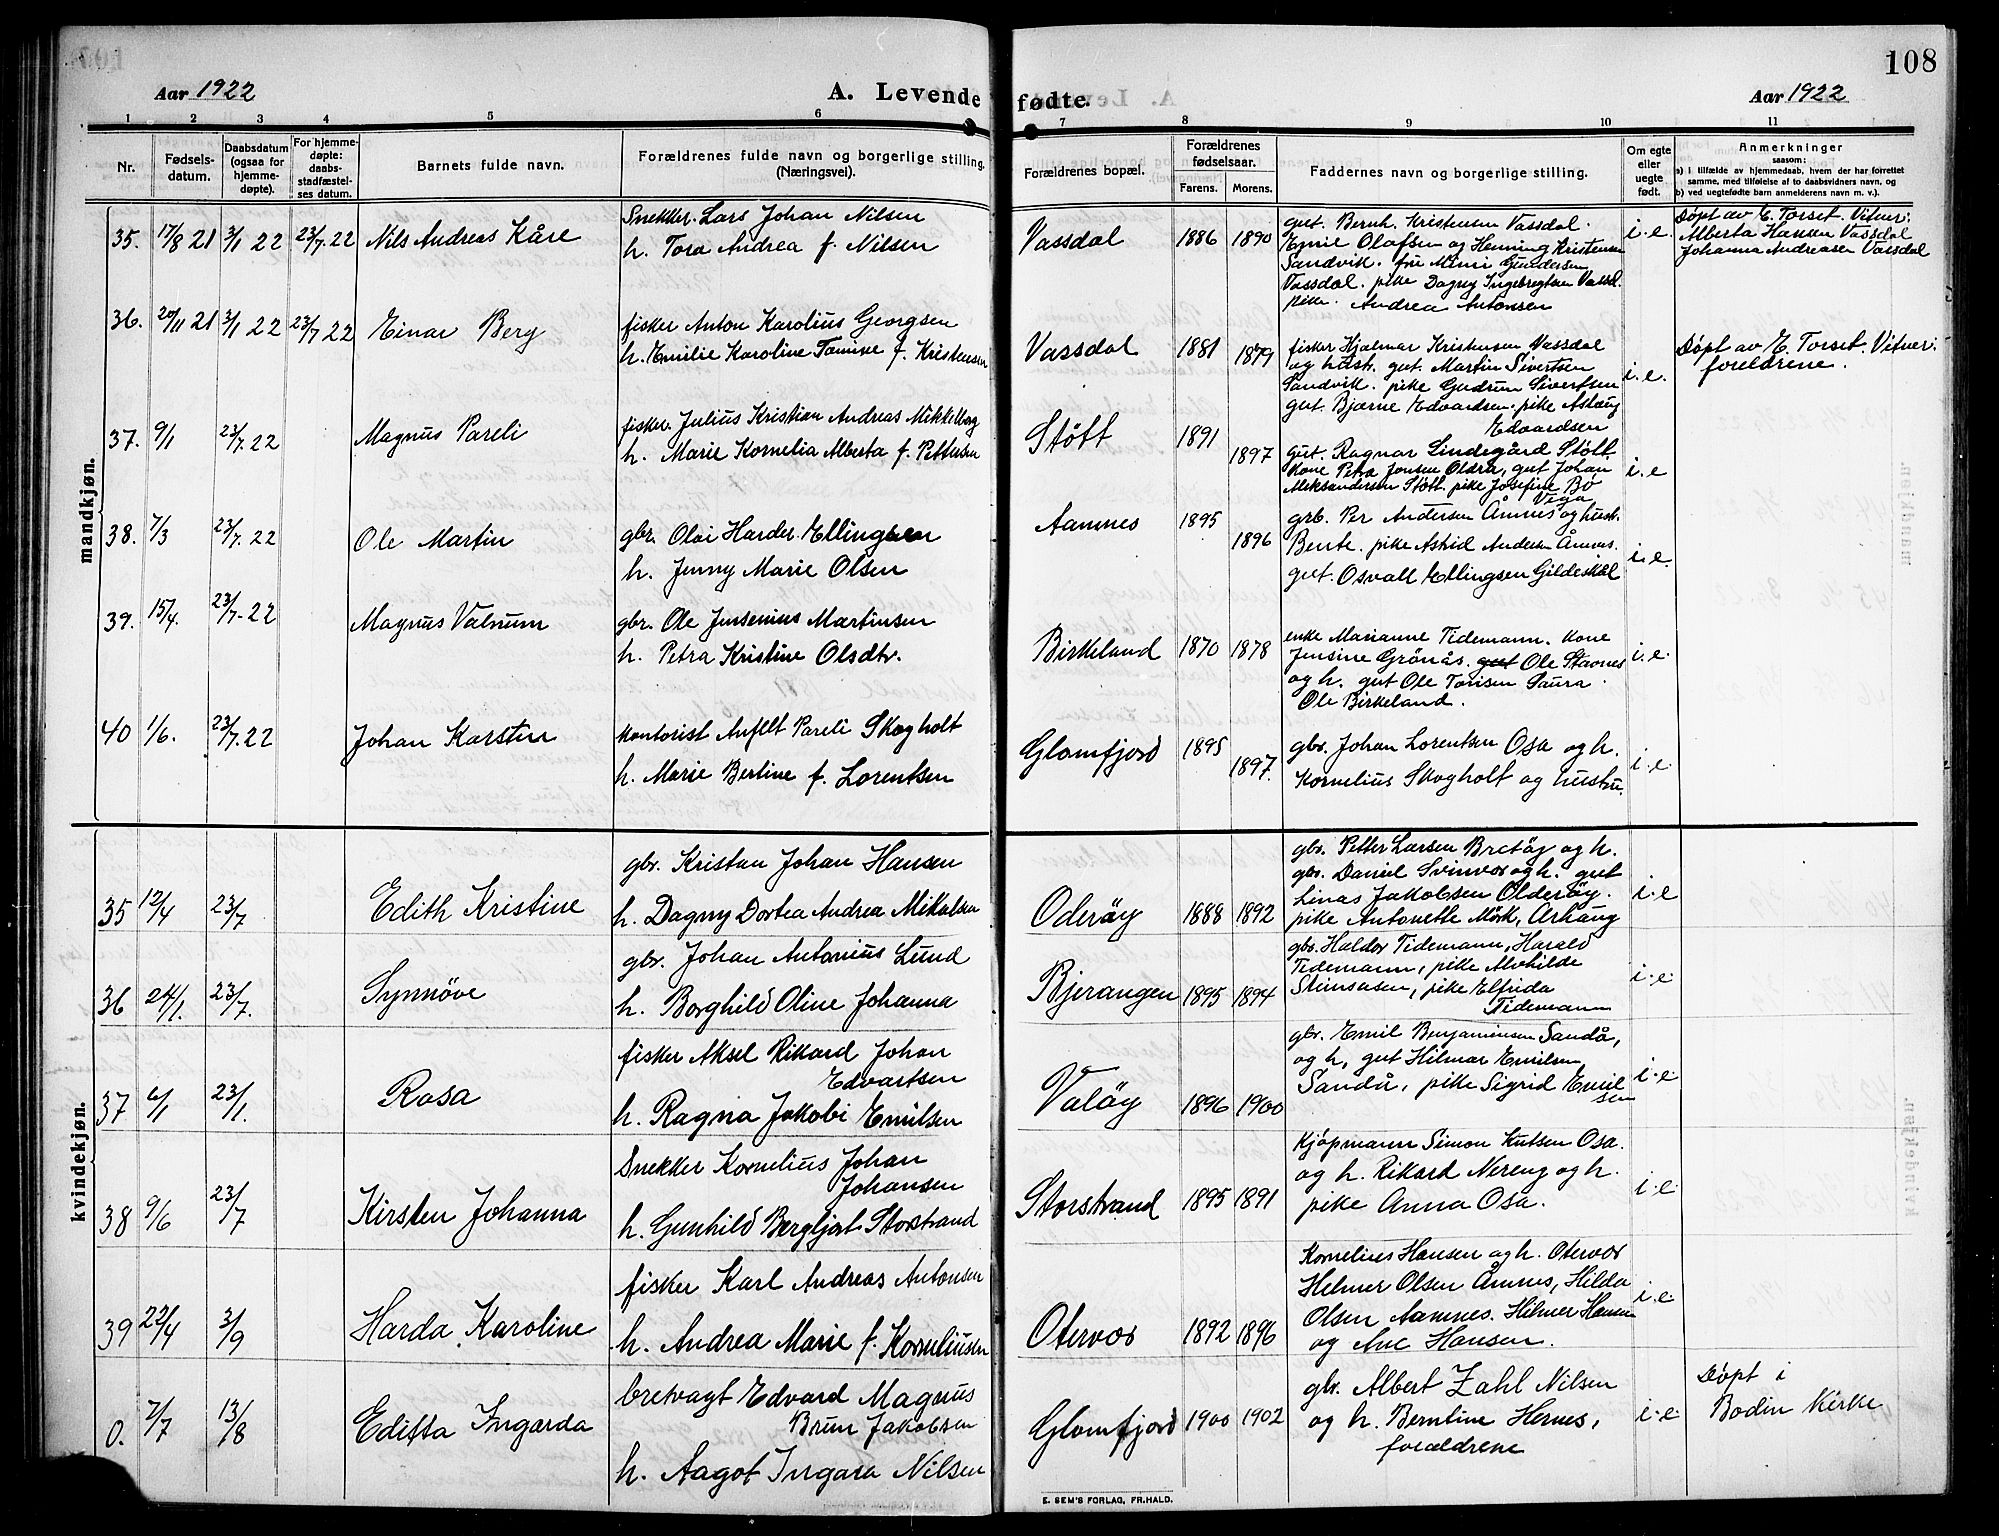 108
Aar 1922
A. Levende fødte.
Aar 1922
1 2 3 4 5 6 7 8 9 10 11
Nr.
Fødsels-
datum.
Daabsdatum
(ogsaa for
hjemme-
døpte).
For hjemme-
døpte:
daabs-
stadfæstel-
ses datum.
Barnets fulde navn.
Forældrenes fulde navn og borgerlige stilling.
(Næringsvei).
Forældrenes bopæl.
Forældrenes
fødselsaar.
Farens. Morens.
Faddernes navn og borgerlige stilling.
Om egte
eller
uegte
født.
Anmerkninger
saasom:
a) i tilfælde av hjemmedaab, hvem der har forrettet
samme, med tilføielse af to daabsvidners navn, og
b) ved uegtefødte barn anmelderens navn m. v.).
mandkjøn.
35. 17/8 21 3/1 22 23/7 22 Nils Andreas Kåre
Snekker. Lars Johan Nilsen
h. Tora Andrea f. Nilsen
Vassdal 1886 1890
gut. Bernh. Kristensen Vassdal.
Emil Olafsen og Henning Kristensen
Sandvik. fru Mimi Gundersen
Vassdal. pike Dagny Ingebregtsen Vassd.
pike. Andrea Antonsen
i. e.
Døpt av E. Torset. Vitner:
Alberta Hansen Vassdal
Johanna Andreasen Vassdal
36. 20/11 21 3/1 22 23/7 22 Einar Berg
fisker Anton Karolius Georgsen
h. Emilie Karoline Tomine f. Kristensen
Vassdal 1881 1879
fisker Hjalmar Kristensen Vassdal
og hust. gut. Martin Sivertsen
Sandvik. pike Gudrun Sivertsen
gut. Bjarne Edvardsen. pike Aslaug
Edvardsen
i. e.
Døpt av E. Torset. Vitner:
foreldrene.
37. 9/1 23/7. 22 Magnus Pareli
fisker. Julius Kristian Andreas Mikkelborg
h. Marie Kornelia Alberta f. Pettersen
Støtt 1891 1897
gut. Ragnar Lindegård Støtt
kone Petra Jensen Oldra, gut Johan
Aleksandersen Støtt. pike Josefine Bø
Vega
i. e
38. 7/3 23/7. 22 Ole Martin
gbr. Olai Harder Ellingsen
h. Jenny Marie Olsen
Aamnes 1895 1896
grb. Per Andersen Åmnes og hust.
Bente. pike Astrid Andersen Åmnes.
gut. Osvall Ellingsen Gildeskål
i. e.
39. 15/4. 23/7. 22 Magnus Valnum
gbr. Ole Jensenius Martinsen
h. Petra Kristine Olsdtr.
Birkeland 1870 1878
enke Marianne Tidemann. Kone
Jensine Grönås. gut Ole Stavnes
og h. gut Ole Tonisen Saura.
Ole Birkeland.
i. e.
40 1/6. 23/7. 22 Johan Karsten
kontorist Pareli Skogholt
h. Marie Berline f. Lorentsen
Glomfjord 1895 1897.
gbr. Johan Lorentsen Osa og h.
Kornelius Skogholt og hustru.
i. e.
kvindekjøn.
35 12/4 23/7 Edith Kristine
gbr. Kristan Johan Hansen
h. Dagny Dortea Andrea Mikalsen
Oderöy 1888 1892
gbr. Petter Larsen Bretöy og h.
gbr. Daniel Svinvær og h. gut
Linas Jakobsen Olderöy.
pike Antonette Mörk, Arhaug
i. e
36 24/1. 23/7. Synnöve
gbr. Johan Antonius Lund
h. Borghild Oline Johanna
Bjerangen 1895 1894
gbr. Haldor Tidemann, Harald
Tidemann, pike Alvhilde
Stensåsen, pike Elfrida
Tidemann
i. e
37 6/1 23/1. Rosa
fisker Aksel Rikard Johan
Edvartsen
h. Ragna Jakobi Emilsen
Valöy 1896 1900
gbr. Emil Benjaminsen Sandå,
og h, gut Hilmar Emilsen
Sandå, pike Sigrid Emil
sen
i. e.
38 9/6 23/7 Kirsten Johanna
Snekker Kornelius Johan
Johansen
h. Gunhild Bergljot Storstrand
Storstrand 1895 1891
Kjöpmann Simon Knutsen Osa.
og h. Rikard Nereng og h.
pike Anna Osa.
i. e
39 22/4 3/9 Harda Karoline
fisker Karl Andreas Antonsen
h. Andrea Marie f. Korneliusen
Otervær 1892 1896
Kornelius Hansen og h. Otervær
Helmer Olsen Åmnes, Hilda
Olsen Aamnes. Hilmer Hansen
og Ane Hansen.
i. e.
0. 7/7 13/8 Editta Ingarda
bretvagt Edvard Magnus
Brun Jakobsen
h. Aagot Ingara Nilsen
Glomfjord 1900 1902
gbr. Albert Zahl Nilsen
og h. Berntine Hernes,
forældrene
i. e
Døpt i
Bodin Kirke
E. SEM'S FORLAG, FR.HALD.